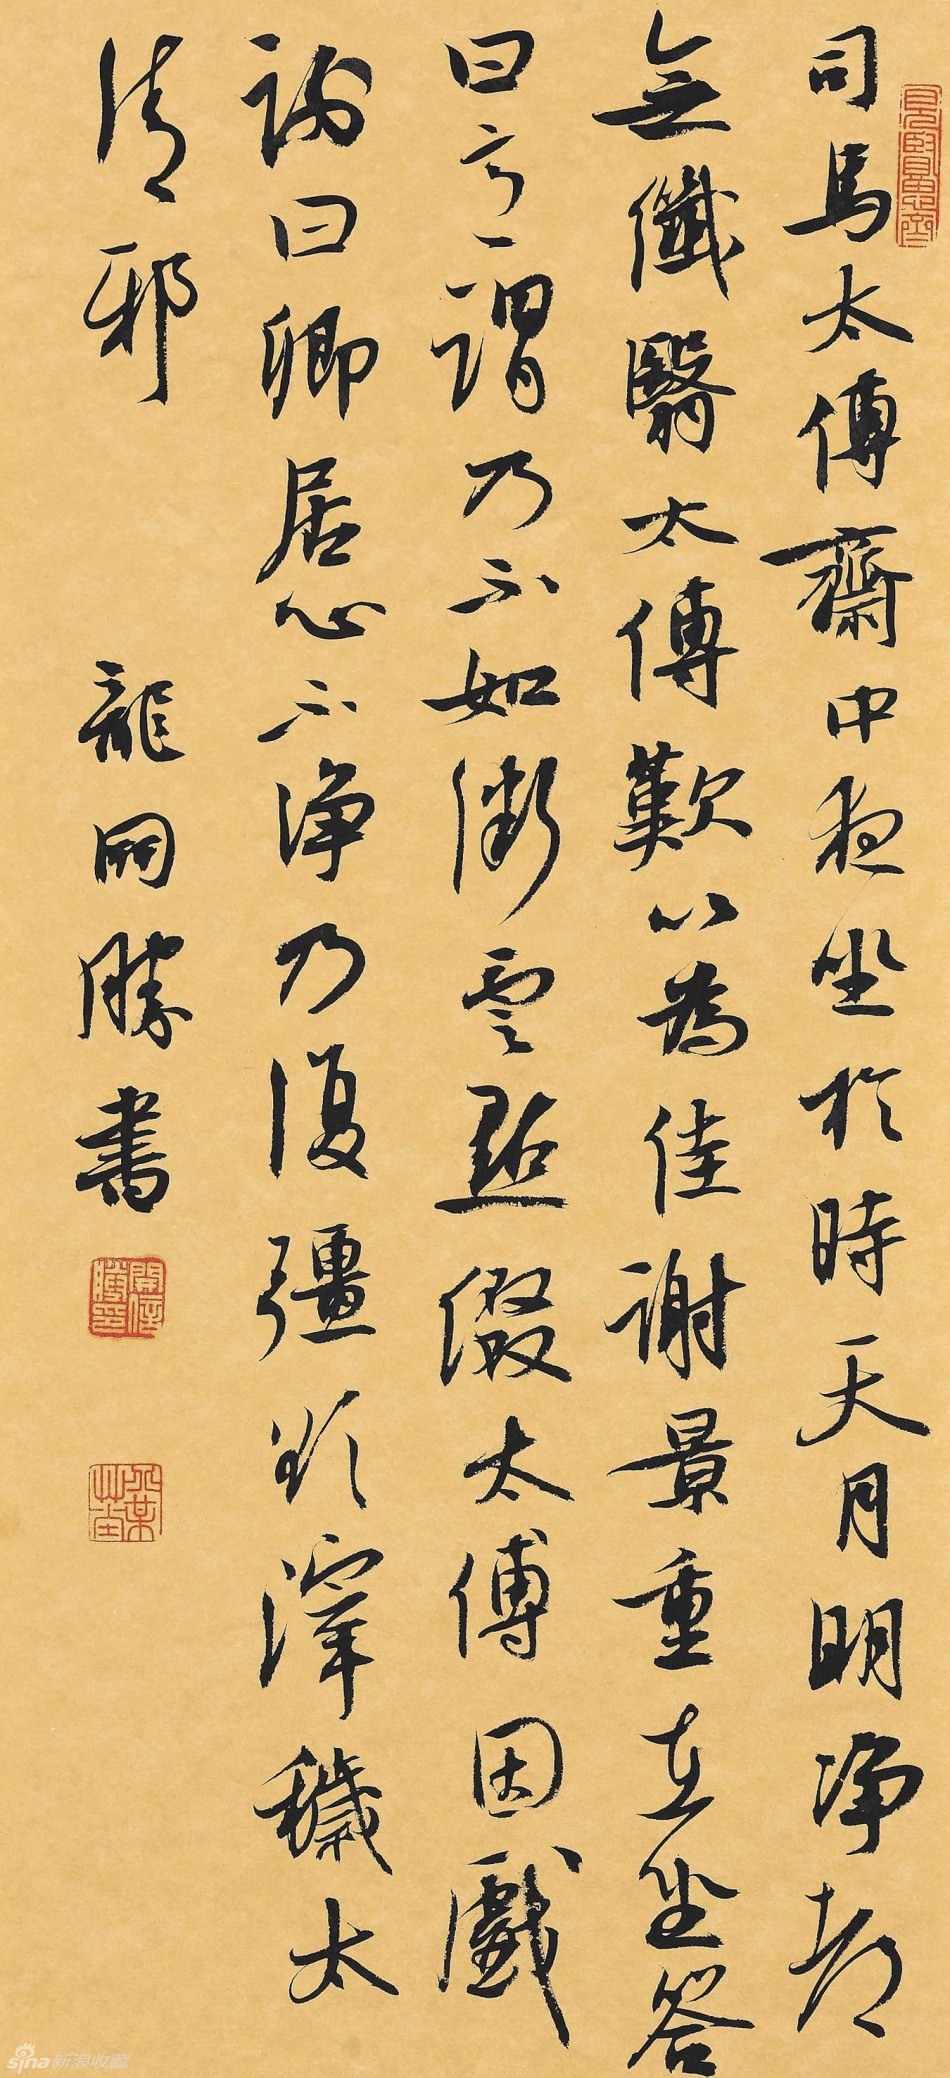 見賢思齊
司馬太傅齋中夜坐於時天月明净都
無纖翳太傅歎以為佳謝景重在坐答
曰意謂乃不如微雲點綴太傅因戲
謝曰卿居心不净乃復彊欲滓穢太
清邪
龍開勝書
sina新浪收藏